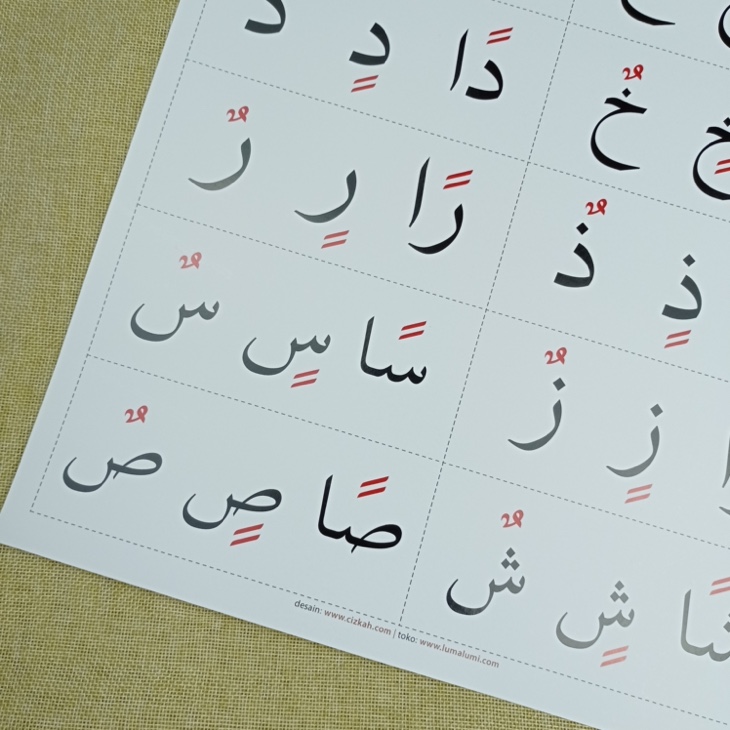 خٍ خٌ دًا دٍ
ذٍ ذٌ رًا رٍ رٌ
زٍ زٌ سًا سٍ سٌ
شًا شٍ شٌ صًا صٍ صٌ
desain: www.cizkah.com | toko: www.lumalumi.com